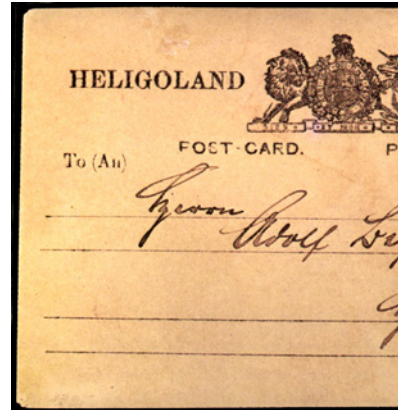 HELIGOLAND
POST-CARD.
To (An)
Herrn
Adolf